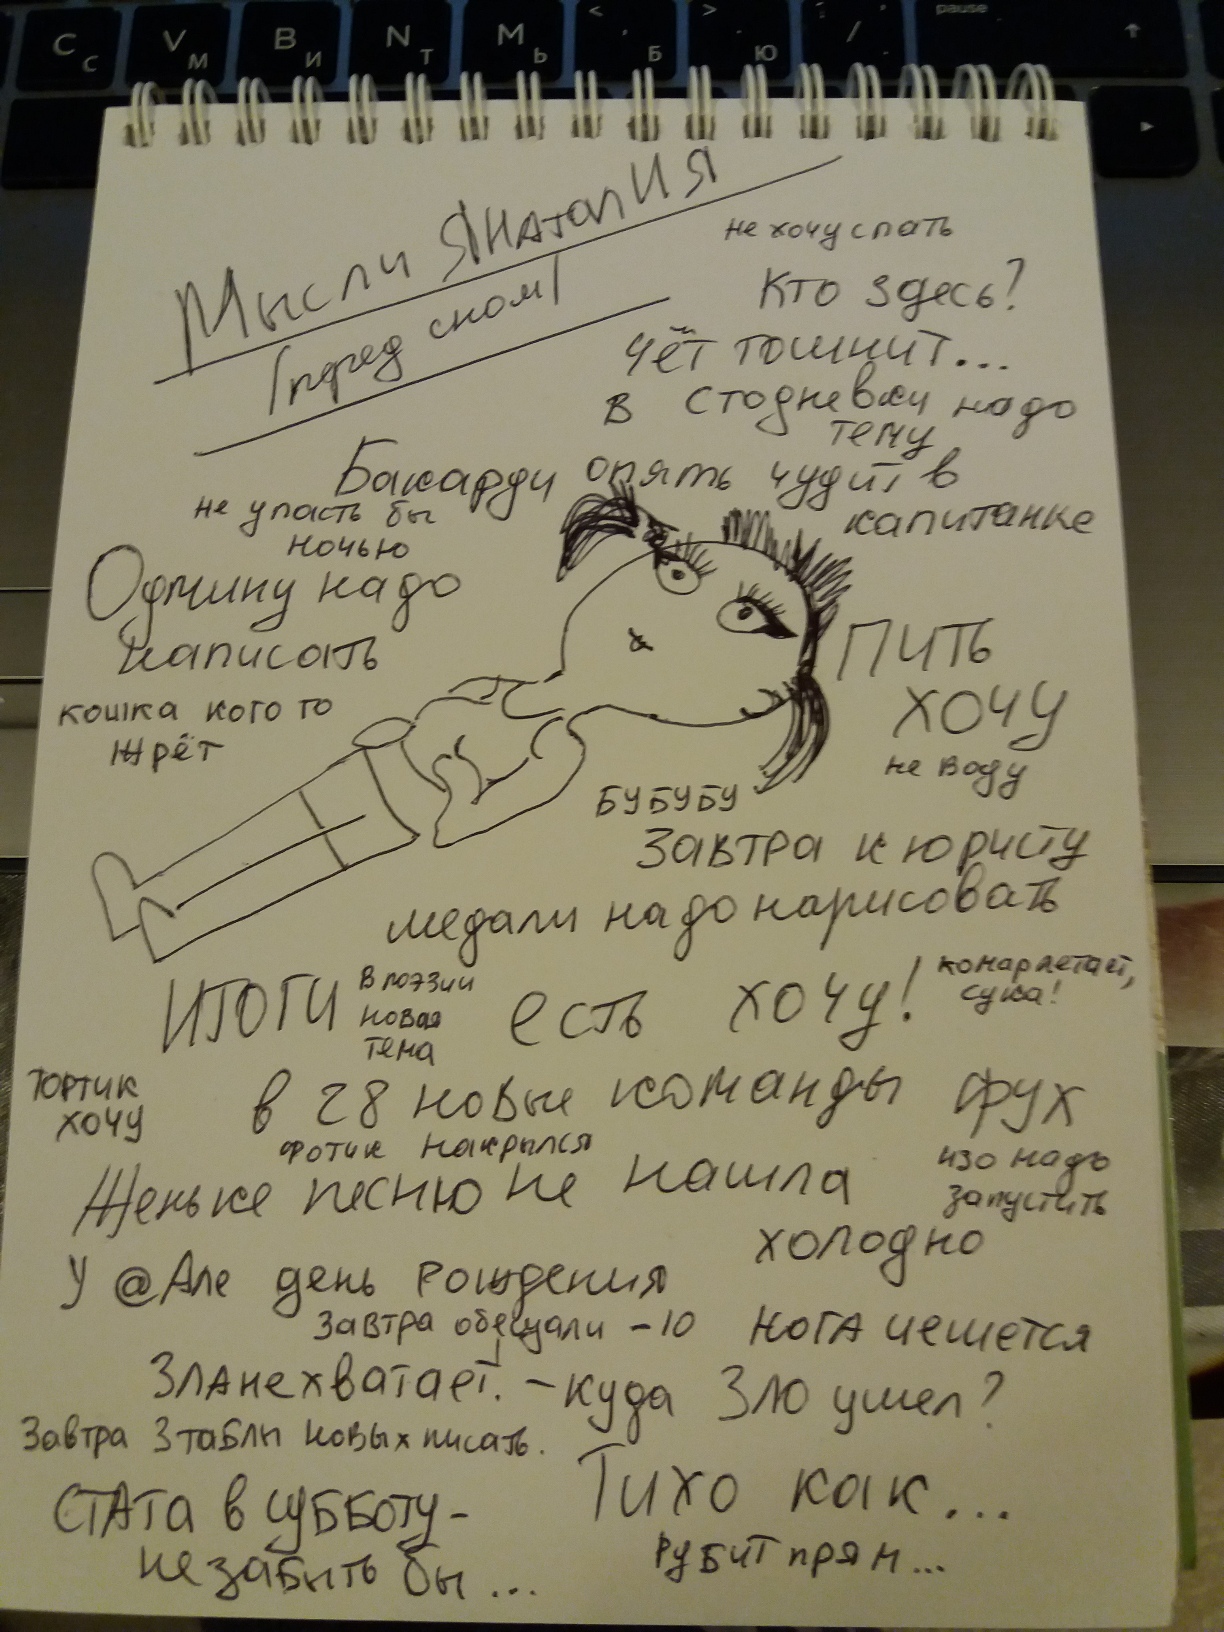 C С
V М
B И
N Т
M Ь
< , Б
> . Ю
/
pause
Мысли ЯНаталИЯ
/перед сном/
не хочу спать
Кто здесь?
чёт тошнит...
в стодневки надо
тему
Бакарди опять чудит в
капитанке
не упасть бы
ночью
Одмину надо
написать
кошка кого то
жрёт
ПИТЬ
ХОЧУ
не воду
БУБУБУ
Завтра к юристу
медали надо нарисовать
ИТОГИ
В поэзии
новая
тема
есть хочу!
комар летает,
сука!
Тортик
хочу
в 28 новые команды
фух
фотик накрылся
Женьке песню не нашла
изо надо
запустить
холодно
У @Але день рождения
Завтра обещали -10
нога чешется
Зла не хватает. - куда Зло ушел?
Завтра 3 таблы новых писать.
СТАТа в субботу -
не забыть бы...
Тихо как...
Рубит прям...